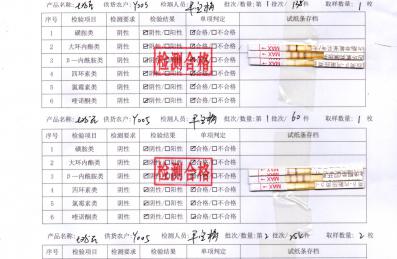 产品名称: 供货农户: Y005 检测人员: 批次/数量: 第 1 批次/ 取样数量: 1 枚
序号 检验项目 检测要求 检验结果 单项判定 试纸条存档
1 磺胺类 阴性 ☑阴性/□阳性 ☑合格/□不合格
2 大环内酯类 阴性 ☑阴性/□阳性 ☑合格/□不合格
3 β-内酰胺类 阴性 ☑阴性/□阳性 ☑合格/□不合格
4 四环素类 阴性 ☑阴性/□阳性 ☑合格/□不合格
5 氯霉素类 阴性 ☑阴性/□阳性 ☑合格/□不合格
6 喹诺酮类 阴性 ☑阴性/□阳性 ☑合格/□不合格
检测合格
MAX
产品名称: 供货农户: Y005 检测人员: 批次/数量: 第 1 批次/ 60 件 取样数量: 1 枚
序号 检验项目 检测要求 检验结果 单项判定 试纸条存档
1 磺胺类 阴性 ☑阴性/□阳性 ☑合格/□不合格
2 大环内酯类 阴性 ☑阴性/□阳性 ☑合格/□不合格
3 β-内酰胺类 阴性 ☑阴性/□阳性 ☑合格/□不合格
4 四环素类 阴性 ☑阴性/□阳性 ☑合格/□不合格
5 氯霉素类 阴性 ☑阴性/□阳性 ☑合格/□不合格
6 喹诺酮类 阴性 ☑阴性/□阳性 ☑合格/□不合格
检测合格
MAX
产品名称: 供货农户: Y005 检测人员: 批次/数量: 第 2 批次/ 取样数量: 2 枚
序号 检验项目 检测要求 检验结果 单项判定 试纸条存档